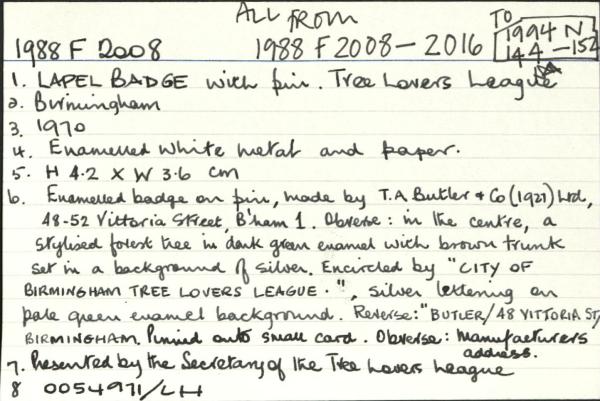 ALL FROM
TO
1988 F 2008
1988 F 2008 - 2016
1994 N
144 - 154
1. LAPEL BADGE with pin. Tree Lovers League
2. Birmingham
3. 1970
4. Enamelled white metal and paper.
5. H 4.2 X W 3.6 cm
6. Enamelled badge on pin, made by T.A Butler & Co (1921) Ltd,
48-52 Vittoria Street, B'ham 1. Obverse: in the centre, a
stylised forest tree in dark green enamel with brown trunk
set in a background of silver. Encircled by "CITY OF
BIRMINGHAM TREE LOVERS LEAGUE · ", silver lettering on
pale green enamel background. Reverse: "BUTLER/48 VITTORIA ST/
BIRMINGHAM. Pinned onto small card. Obverse: Manufacturers
address.
7. Presented by the Secretary of the Tree Lovers League
8 0054971/LH